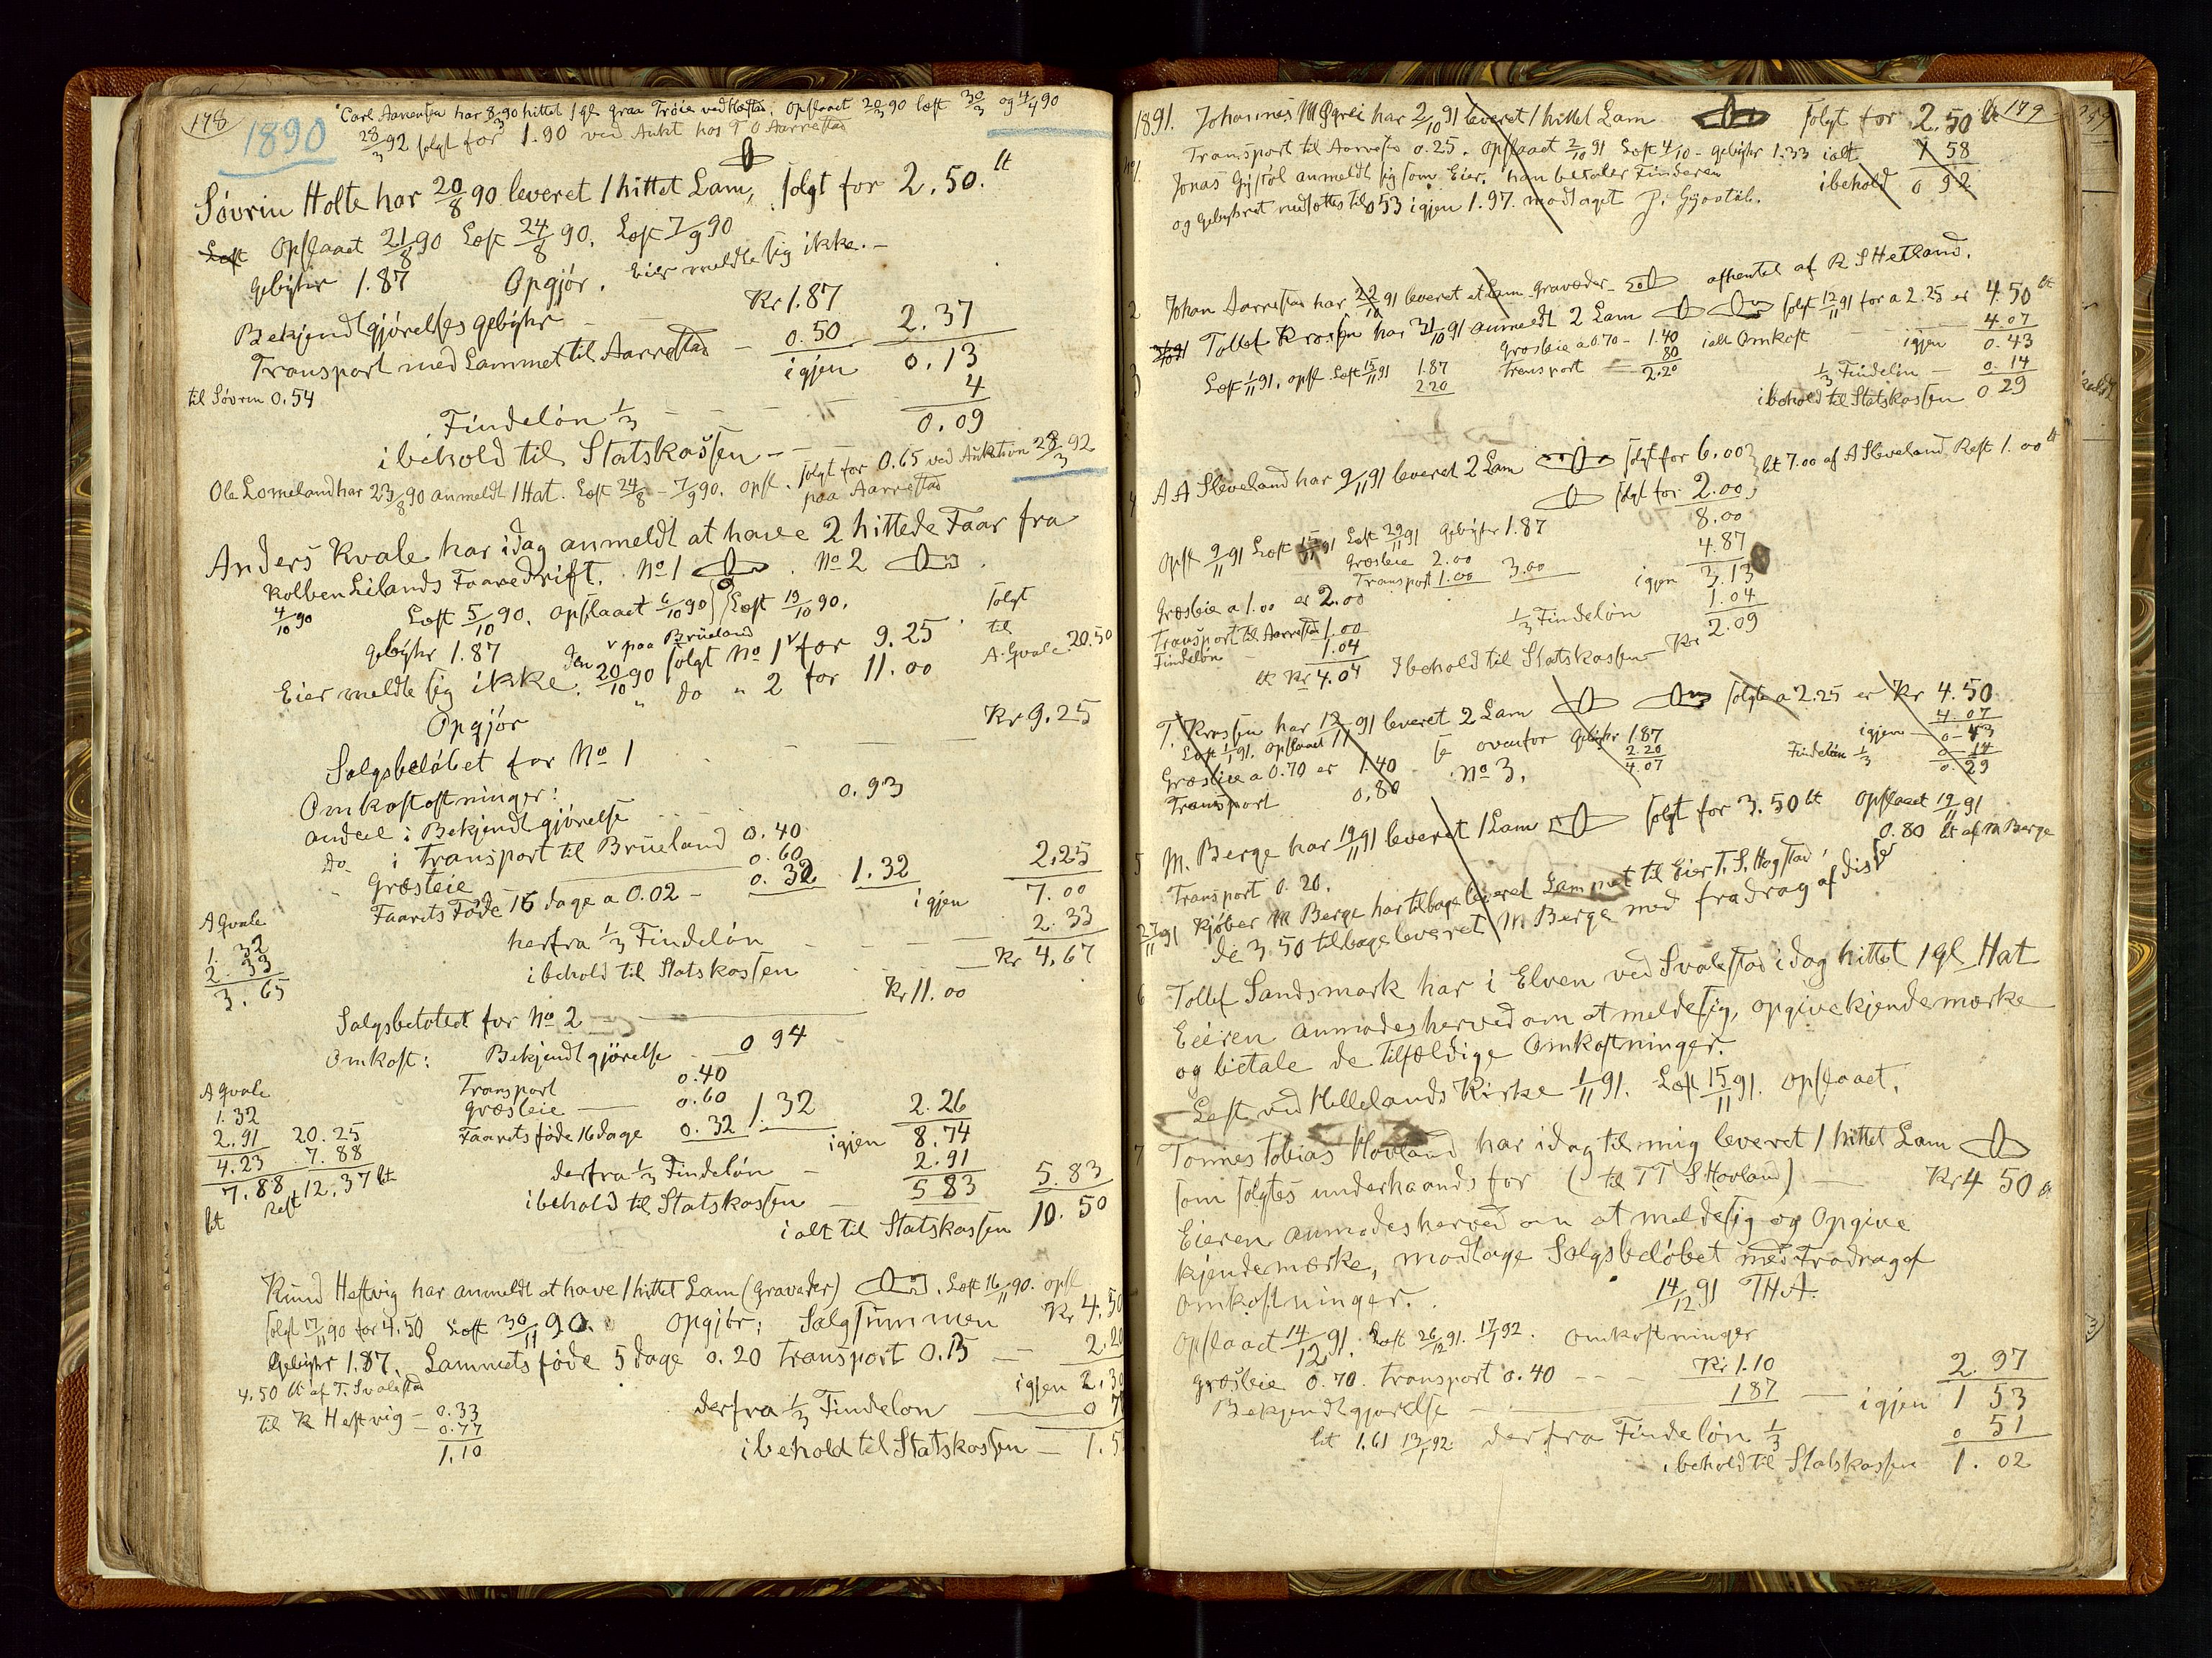 178
1890
Carl Aanensen har 8/3 90 hittet 1 gl. graa Trøie ved Hæstad. Opslaaet 20/3 90 læst 30/3 og 4/4 90
28/3 92 solgt for 1.90 ved Aukt hos T O Aarrestad
Søvrin Holte har 20/8 90 leveret 1 hittet Lam, solgt for 2.50. bt
Læst Opslaaet 21/8 90 Læst 24/8 90. Læst 7/9 90
Gebyhr 1.87 Opgjør. Eier meldte sig ikke. -
Bekjendtgjørelses gebyhr - - Kr 1.87
Transport med Lammet til Aarrestad - 0.50 2.37
igjen 0.13
til Søvrin 0.54
Findeløn 1/3 - - - - 4
ibehold til Statskassen - - 0.09
Ole Lomeland har 23/8 90 anmeldt 1 Hat. Læst 24/8 - 7/9 90. opsl. solgt for 0.65 ved Auktion 28/3 92
paa Aarrestad
Anders Kvale har idag anmeldt at have 2 hittede Faar fra
Kolben Eilands Faaredrift. No 1 . No 2 .
4/10 90 Læst 5/10 90. Opslaaet 6/10 90 Læst 19/10 90.
Gebyhr 1.87 den v paa Brüeland solgt
Eier meldte sig ikke. 20/10 90 solgt No 1 v for 9.25 til
" do " 2 for 11.00 A. Qvale 20.50
Opgjør
Salgsbeløbet for No 1 - - Kr 9.25
Omkostostninger:
andeel i Bekjendtgjørelse - - 0.93
do i Transport til Brüeland 0.40
" Græsleie 0.60
Faarets Føde 16 dage a 0.02 - 0.32 1.32 2.25
igjen 7.00
A Qvale
1.32
2.33
3.65
herfra 1/3 Findeløn - - - 2.33
ibehold til Statskassen - - Kr 4.67
Salgsbeløbet for No 2 - Kr 11.00
Omkost: Bekjendtgjørelse - 0 94
Transport 0.40
græsleie 0.60
Faarets føde 16 dage 0.32 1.32 2.26
igjen 8.74
A Qvale
1.32
2.91 20.25
4.23 7.88
7.88 Rest 12.37 bt
bt
derfra 1/3 Findeløn - 2.91
ibehold til Statskassen - 5 83 5.83
ialt til Statskassen 10.50
Knud Heftvig har anmeldt at have 1 hittet Lam (Gravæder) . Læst 16/11 90. opsl
solgt 17/11 90 for 4.50 Læst 30/11 90. Opgjør: Salgsummen Kr 4.50
Gebyhr 1.87. Lammets føde 5 dage 0.20 Transport 0.13 - 2.20
4.50 bt af T. Svalestad igjen 2.30
til K Heftvig - 0.33 derfra 1/3 Findeløn
0.77
1.10 ibehold til Statskassen -
1891. Johannes M Ognei har 2/10 91 leveret 1 hittet Lam solgt for 2.50 bt 179
Transport til Aarrestad 0.25. Opslaaet 2/10 91 Læst 4/10 - gebyhr 1.33 ialt 1 58
Jonas Gystøl anmeldt sig som Eier. han betaler Finderen ibehold 0 92
og Gebyhret nedsættes til 0 53 igjen 1.97. modtaget J. Gjøstøl.
2 Johan Aarrestad har 22/10 91 leveret et Lam - gravæder - afhentet af R S Hetland.
31/10 91 Tollef Krossen har 31/10 91 anmeldt 2 Lam solgt 12/11 91 for a 2.25 er 4.50 bt
3 Græsleie a 0.70 - 1.40 ialt Omkost - - 4.07
Læst 1/11 91. opsl. Læst 15/11 91 1.87 Transport = 80 igjen 0.43
2.20 2.20 1/3 Findeløn - 0.14
ibehold til Statskassen 0 29
4 A A Sleveland har 9/11 91 leveret 2 Lam solgt for 6.00 bt 7.00 af A Sleveland, Rest 1.00 bt
solgt for 2.00
8.00
Opsl 9/11 91 Læst 15/11 91 Læst 29/11 91 Gebyhr 1.87 4.87
Græsleie 2.00
Transport 1.00 3.00 igjen 3.13
Græsleie a 1.00 er 2.00 1/3 Findeløn 1.04
Transport til Aarrestad 1.00 Kr 2.09
Findeløn - 1.04
bt Kr 4.04 Ibehold til Statskassen
T. Krossen har 12/11 91 leveret 2 Lam solgte a 2.25 er Kr 4.50
Læst 1/11 91. opslaaet 11 se ovenfor Gebyhr 1.87 4.07
Græsleie a 0.70 er 1.40 No 3. 2.20 igjen 0-43
Transport 0,80 4.07 Findeløn 1/3 0-14
0.29
5 M. Berge har 19/11 91 leveret 1 Lam solgt for 3.50 bt Opslaaet 19/11 91
Transport 0.20. 0.80 bt af M Berge
27/11 91 Kjøber M Berge har tilbageleveret Lammet til Eier T. S. Hogstad,
de 3.50 tilbageleveret M Berge med fradrag af disse
6 Tollef Sandsmark har i Elven ved Svalestad idag hittet 1 gl. Hat
Eieren anmodes herved om at melde sig, opgive kjendemærke
og betale de tilfældige Omkostninger.
Læst ved Hellelands Kirke 1/11 91. Læst 15/11 91. opslaaet.
7 Tonnes Tobias Hovland har idag til mig leveret 1 hittet Lam
som solgtes underhaands for (til T T S Hovland) - Kr 4 50 bt
Eieren anmodes herved om at melde sig og Opgive
kjendemærke, modtage Salgsbeløbet med Fradrag af
Omkostninger. 14/12 91 THA.
Opslaaet 14/12 91. Læst 26/12 91. 17/1 92. Omkostninger
græsleie 0.70. Transport 0.40 - - - Kr 1.10
Bekjendtgjørelse - 1 87 2.97
igjen 1 53
bt 1.61 13/1 92. derfra Findeløn 1/3 0 51
ibehold til Statskassen 1.02